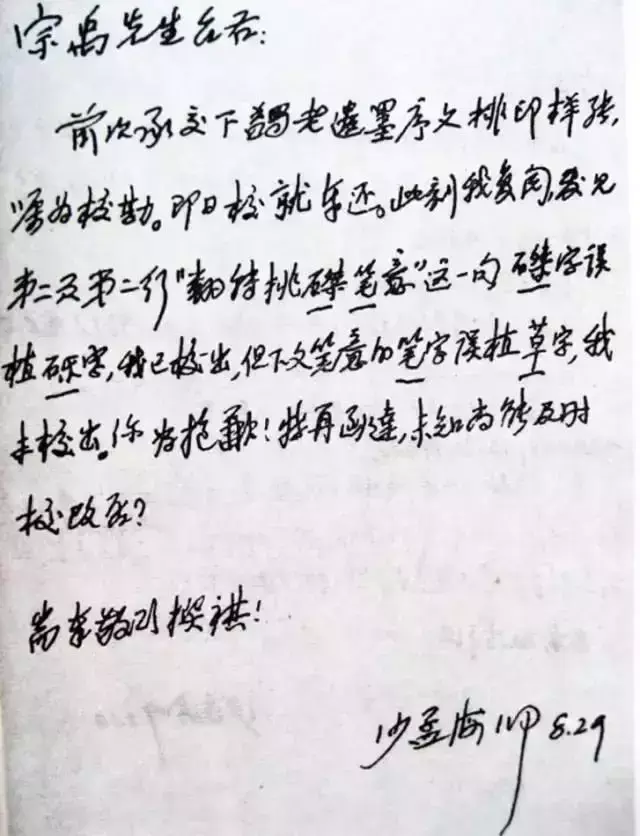 宗禹先生台右:
前次承交下蠲老遗墨序文排印样张,
嘱为校勘。即日校就奉还。此刻我复阅,发见
第二页第二行"翻转挑磔笔意"这一句磔字误
植砾字,我已校出,但下文笔意的笔字误植草字,我
未校出。深为抱歉!特再函达,未知尚能及时
校改否?
耑奉敬颂撰祺!
沙孟海叩 8.29